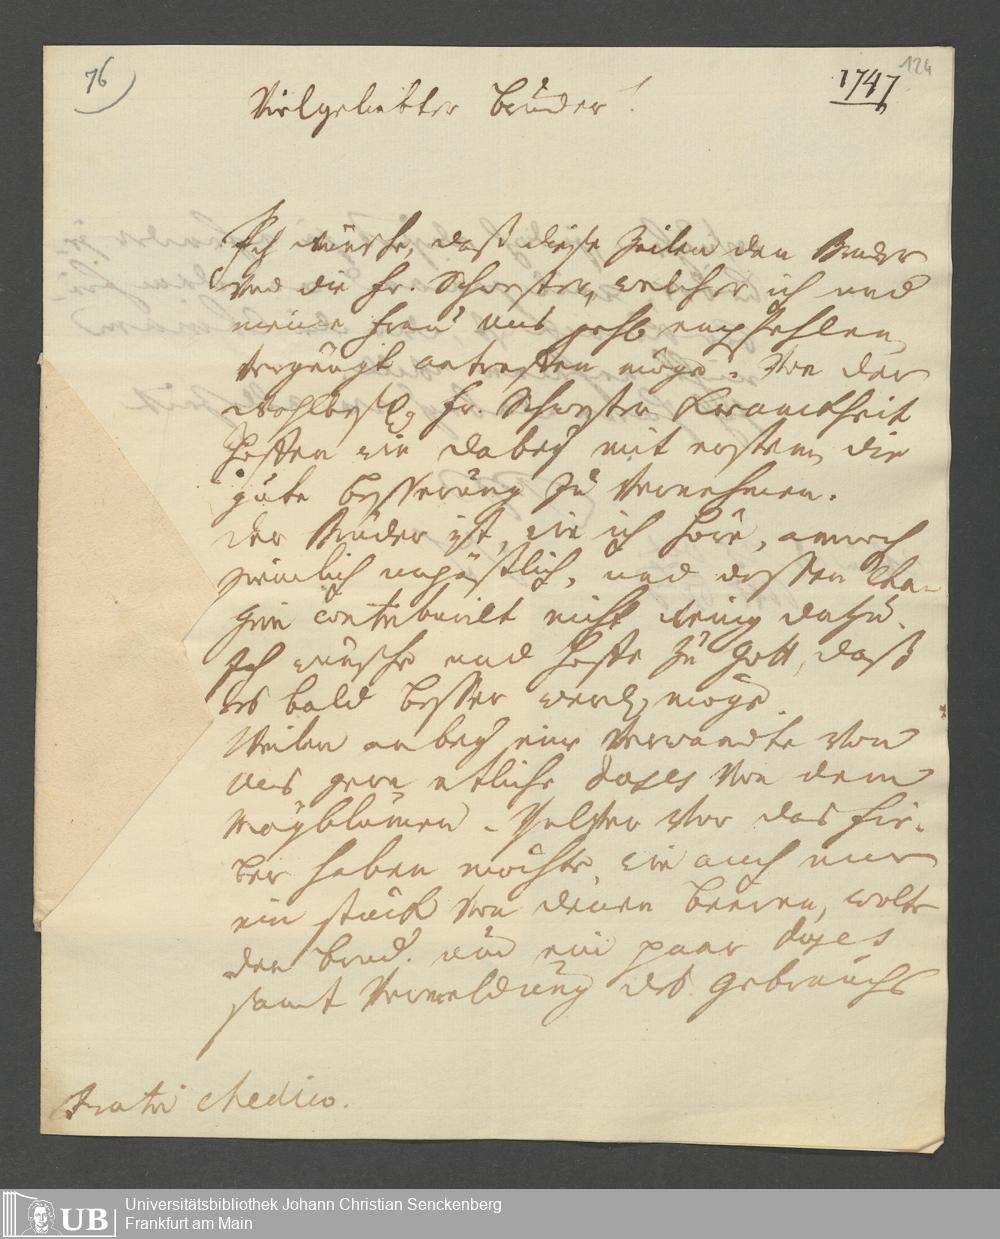 76)
1747
124
Vielgeliebter Bruder!
Ich wünsche, daß diese Zeilen den Bruder
und die Fr. Schwester, welcher ich und
meine Frau uns gehb empfehlen,
vergnügt antreffen möge. Von der
Fr. Schwester Kranckheit
hoffen wir dabey mit erstem die
gute Besserung zu vernehmen.
Der Bruder ist, wie ich höre, annoch
zimlich unpäßlich, und dessen Cha-
grin contribuirt nicht wenig dazu.
Ich wünsche und hoffe zu Gott, daß
es bald besser werd möge.
Weilen anbey eine Verwandte von
uns gern etliche doses von dem
Mayblumen-Pulver vor das Fie-
ber haben möchte, wie auch nur
ein stück von denen Beeren, wolte
den Brud. um ein paar doses
samt Vermeldung des Gebrauchs
Fratri Medico.
UB
Universitätsbibliothek Johann Christian Senckenberg
Frankfurt am Main